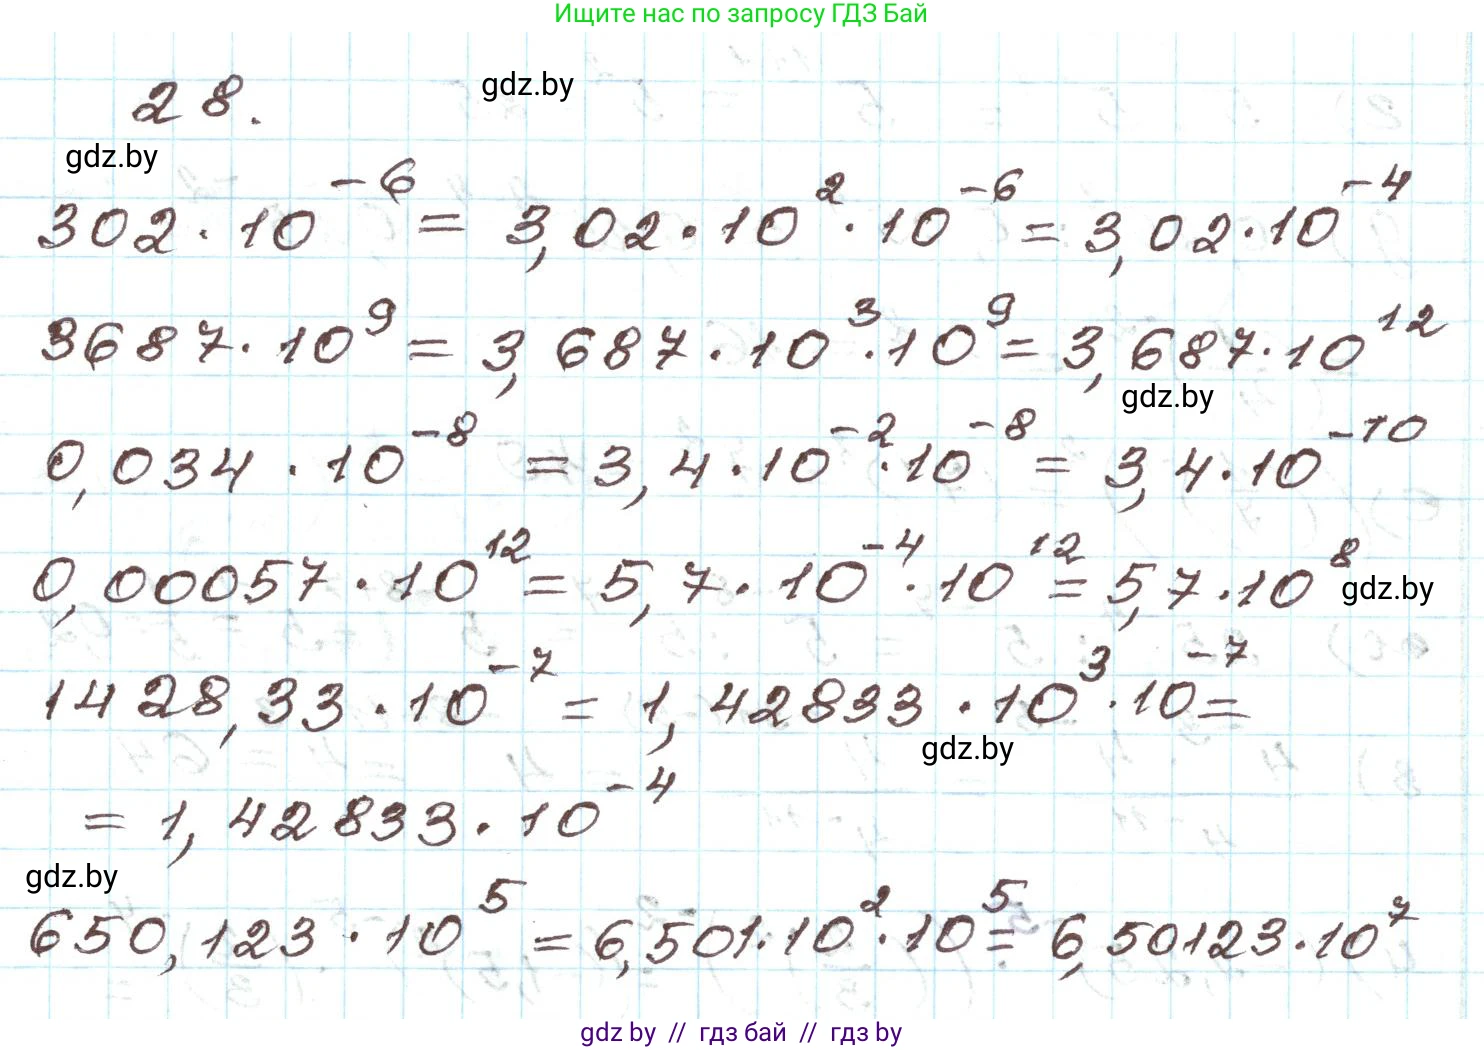 Ищите нас по запросу ГДЗ Бай
28.
gdz.by
gdz.by
302 · 10⁻⁶ = 3,02 · 10² · 10⁻⁶ = 3,02 · 10⁻⁴
3687 · 10⁹ = 3,687 · 10³ · 10⁹ = 3,687 · 10¹²
gdz.by
0,034 · 10⁻⁸ = 3,4 · 10⁻² · 10⁻⁸ = 3,4 · 10⁻¹⁰
0,00057 · 10¹² = 5,7 · 10⁻⁴ · 10¹² = 5,7 · 10⁸
gdz.by
1428,33 · 10⁻⁷ = 1,42833 · 10³ · 10⁻⁷ =
gdz.by
= 1,42833 · 10⁻⁴
gdz.by
650,123 · 10⁵ = 6,501 · 10² · 10⁵ = 6,50123 · 10⁷
gdz by // гдз бай // гдз by